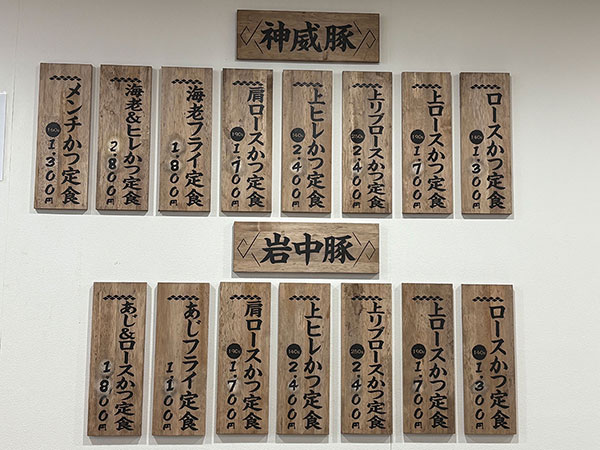 神威豚
ロースかつ定食
140g
1.300円
上ロースかつ定食
190g
1.700円
上リブロースかつ定食
250g
2.400円
上ヒレかつ定食
160g
2.400円
肩ロースかつ定食
190g
1.700円
海老フライ定食
1.800円
海老&ヒレかつ定食
2.800円
メンチかつ定食
160g
1.300円
岩中豚
ロースかつ定食
140g
1.300円
上ロースかつ定食
190g
1.700円
上リブロースかつ定食
250g
2.400円
上ヒレかつ定食
160g
2.400円
肩ロースかつ定食
190g
1.700円
あじフライ定食
1.100円
あじ&ロースかつ定食
1.800円